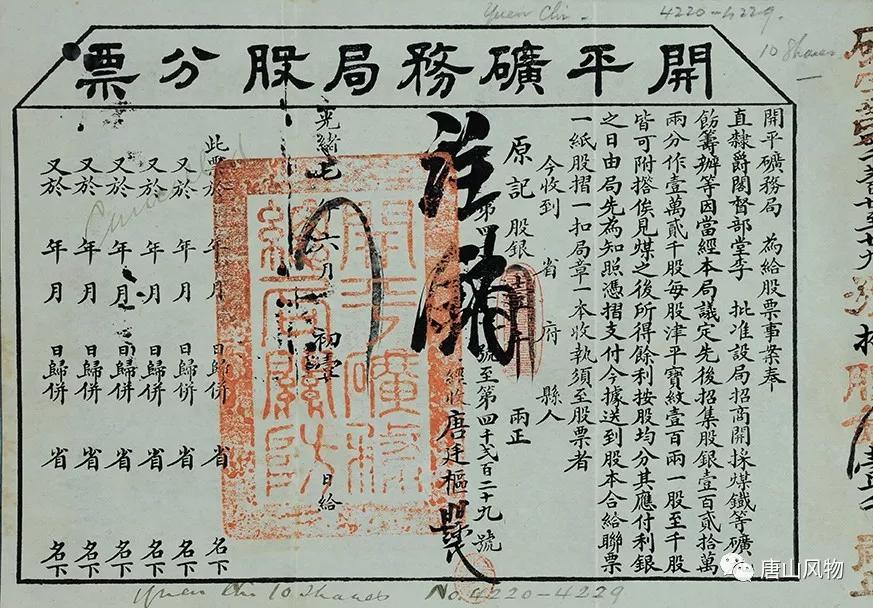 Yuen Chi. 4220-4229.
10 Shares
開平礦務局股分票
開平礦務局 為給股票事案奉
直隸爵閣督部堂李 批准設局招商開採煤鐵等礦
飭籌辦等因當經本局議定先後招集股銀壹百貳拾萬
兩分作壹萬貳千股每股津平寶紋壹百兩一股至千股
皆可附搭俟見煤之後所得餘利按股均分其應付利銀
之日由局先為知照憑摺支付今據送到股本合給聯票
一紙股摺一扣局章一本收執須至股票者
今收到 省 府 縣人
原記 股銀 兩正
註銷
第四 號至第四千弍百二十九號
經收唐廷樞
光緒七年六月 初壹 日給
開平礦務
總局關防
此票於 年 月 日歸併 省 名下
又於 年 月 日歸併 省 名下
又於 年 月 日歸併 省 名下
又於 年 月 日歸併 省 名下
又於 年 月 日歸併 省 名下
又於 年 月 日歸併 省 名下
Yuen Chi 10 Shares No. 4220-4229
唐山风物